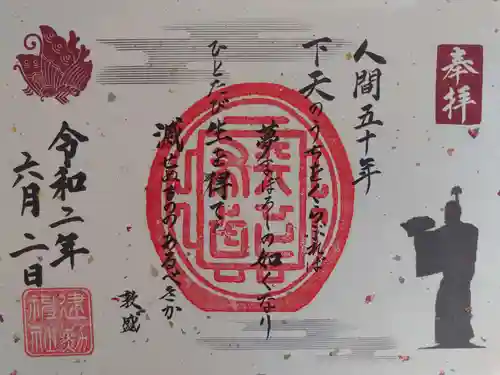 奉拝
人間五十年
下天のうちをくらぶれば
夢まぼろしの如くなり
ひとたび生を得て
滅せぬもののあるべきか
敦盛
令和二年
六月二日
建勲神社